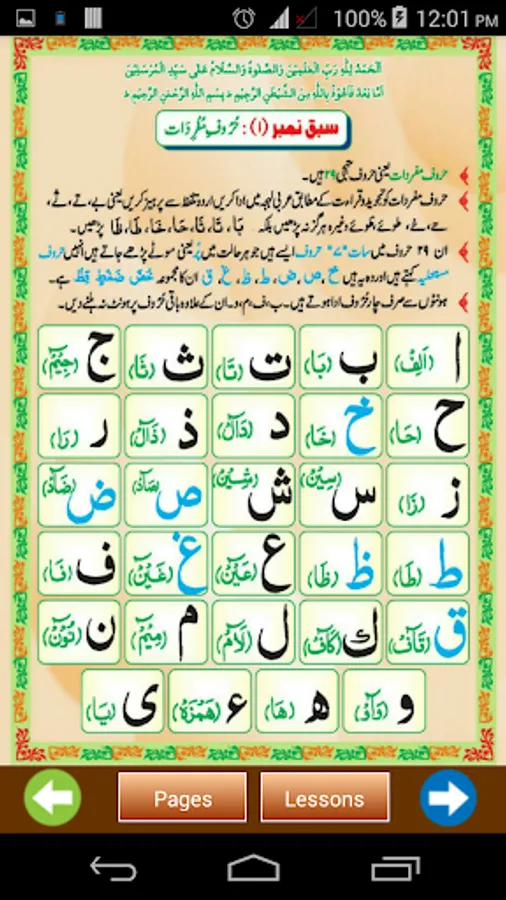 100% 12:01 PM
اَلْحَمْدُ لِلّٰهِ رَبِّ الْعٰلَمِیْنَ وَالصَّلٰوةُ وَالسَّلَامُ عَلٰی سَیِّدِ الْمُرْسَلِیْنَ
اَمَّا بَعْدُ فَاَعُوْذُ بِاللّٰهِ مِنَ الشَّیْطٰنِ الرَّجِیْمِ ط بِسْمِ اللّٰهِ الرَّحْمٰنِ الرَّحِیْمِ ط
سبق نمبر (۱) : حُرُوفِ مُفْرَدَات
حروف مفردات یعنی حروف تہجی ۲۹ ہیں۔
حروف مفردات کو تجوید و قراءت کے مطابق عربی لہجہ میں ادا کریں اردو تلفظ سے پرہیز کریں یعنی بے، تے، ثے،
حے، خے، طوئے، ظوئے وغیرہ ہرگز نہ پڑھیں بلکہ بَا، تَا، ثَا، حَا، خَا، طَا، ظَا پڑھیں۔
ان ۲۹ حروف میں سات "۷" حروف ایسے ہیں جو ہر حالت میں پُر یعنی موٹے پڑھے جاتے ہیں انہیں حروف
مستعلیہ کہتے ہیں اور وہ یہ ہیں خ، ص، ض، ط، ظ، غ، ق ان کا مجموعہ خُصَّ ضَغْطٍ قِظْ ہے۔
ہونٹوں سے صرف چار حُروف ادا ہوتے ہیں۔ ب، ف، م، و۔ ان کے علاوہ باقی حُروف پر ہونٹ نہ ہلنے دیں۔
ا (اَلِفْ) ب (بَا) ت (تَا) ث (ثَا) ج (جِیْمْ)
ح (حَا) خ (خَا) د (دَالْ) ذ (ذَالْ) ر (رَا)
ز (زَا) س (سِیْنْ) ش (شِیْنْ) ص (صَادْ) ض (ضَادْ)
ط (طَا) ظ (ظَا) ع (عَیْنْ) غ (غَیْنْ) ف (فَا)
ق (قَافْ) ك (کَافْ) ل (لَامْ) م (مِیْمْ) ن (نُوْنْ)
و (وَاوْ) ھ (ھَا) ء (ھَمْزَہ) ی (یَا)
Pages Lessons